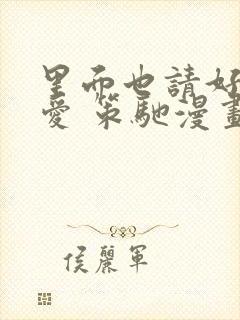 里而也請好
愛 策馳漫畫
侯麗軍